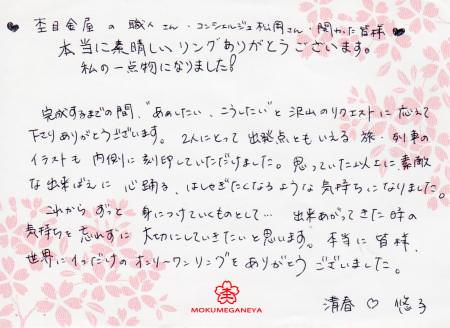 ♥ 杢目金屋 の 職人さん・コンシェルジュ松岡さん・関かた皆様 ♥
本当に素晴しいリングありがとうございます。
私の一点物になりました!
完成するまでの間、"あぁしたい、こうしたい"と沢山のリクエストに応えて
下さりありがとうございます。2人にとって出発点ともいえる旅・列車の
イラストも内側に刻印していただけました。思っていた以上に素敵
な出来ばえに心踊る、はしゃぎたくなるような気持ちになりました。
これからずっと身につけていくものとして… 出来あがってきた時の
気持ちを忘れずに大切にしていきたいと思います。本当に皆様、
世界に1つだけのオンリーワンリングをありがとうございました。
MOKUMEGANEYA
清春 ♡ 悠子